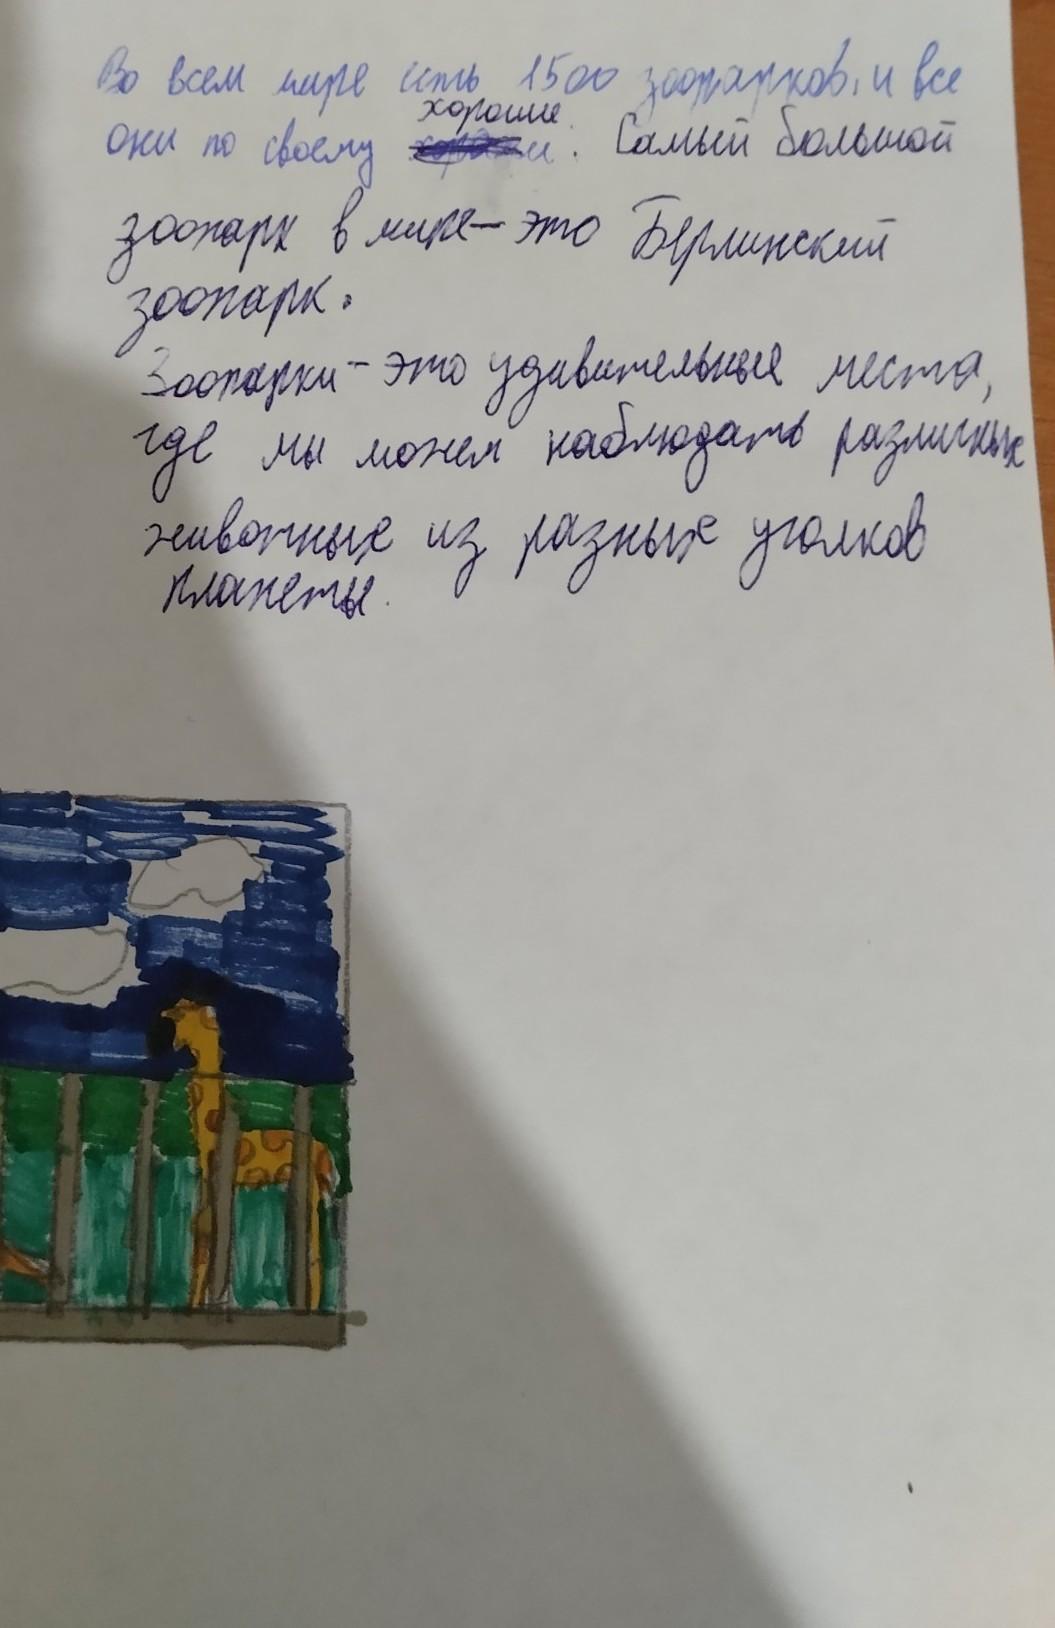 Во всем мире есть 1500 зоопарков, и все
они по своему хорошие. Самый большой
зоопарк в мире - это Берлинский
зоопарк.
Зоопарки - это удивительные места,
где мы можем наблюдать различных
животных из разных уголков
планеты.